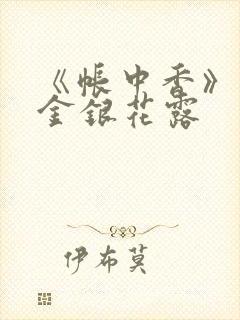 《帳中香》
金銀花露
伊布莫